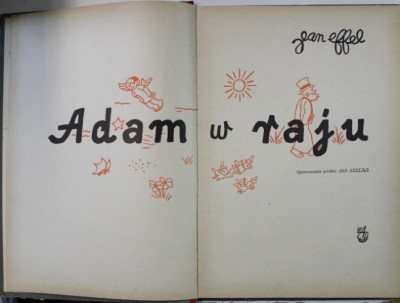 jean effel
Adam w raju
Opracowanie polskie JAN SZELĄG